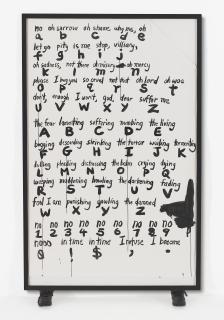 no oh sorrow oh shame why me, oh
a b c d e
let go pity is me stop, villainy,
f g h i j
oh sadness, not there dismissing oh mercy
k l m n
please I beg you so cruel not that oh lord oh woe
o p q r s t
don't, enough I won't, god, dear suffer me
u v w x y z
the fear lamenting suffering mending the living
A B C D E
begging descending shrinking the terror wishing
F G H I J K
killing pleading distressing the hidden crying dying
L M N O P Q
weeping maddening howling the darkening fading
R S T U V
foul I am punishing growling the damned
W X Y Z
no no no no no no no no no
1 2 3 4 5 6 7 8 9
in time in time I refuse I become
0 ! $ ; .